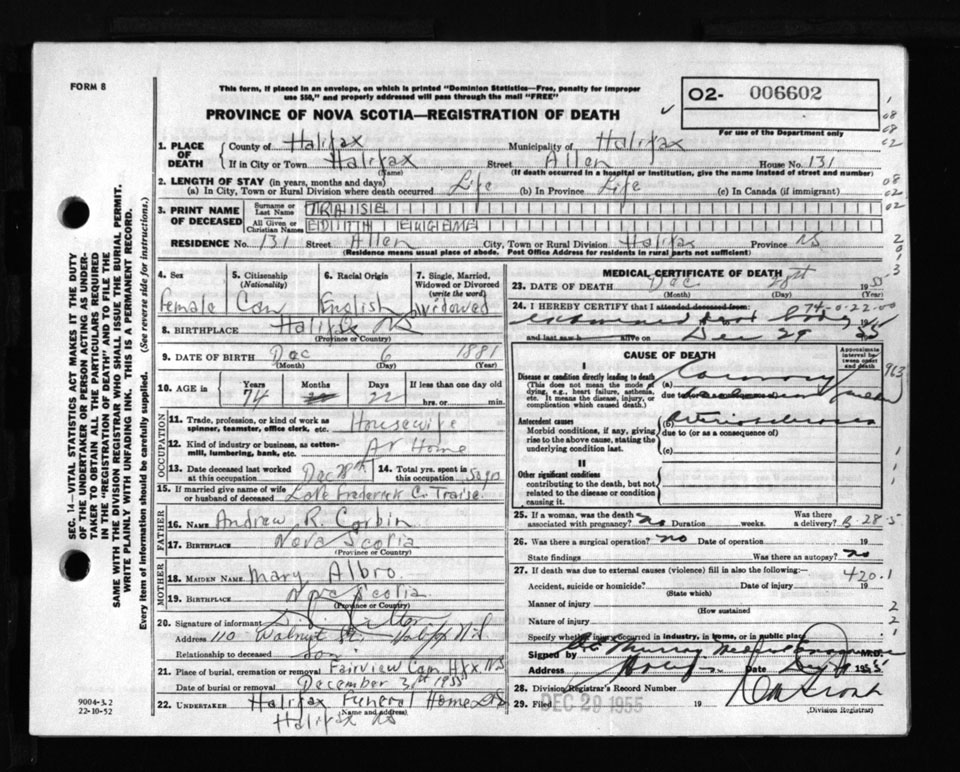 FORM 8
This form, if placed in an envelope, on which is printed "Dominion Statistics—Free, penalty for improper
use $50," and properly addressed will pass through the mail "FREE"
PROVINCE OF NOVA SCOTIA—REGISTRATION OF DEATH
O2- 006602
For use of the Department only
1. PLACE OF DEATH
County of Halifax Municipality of Halifax
If in City or Town Halifax Street Allen House No. 131
(Name) (If death occurred in a hospital or institution, give the name instead of street and number)
2. LENGTH OF STAY (in years, months and days)
(a) In City, Town or Rural Division where death occurred Life (b) In Province Life (c) In Canada (if immigrant)
3. PRINT NAME OF DECEASED
Surname or Last Name TRAISE
All Given or Christian Names EDITH EUGENE
RESIDENCE No. 131 Street Allen City, Town or Rural Division Halifax Province NS
(Residence means usual place of abode. Post Office Address for residents in rural parts not sufficient)
4. Sex Female
5. Citizenship (Nationality) Can
6. Racial Origin English
7. Single, Married, Widowed or Divorced (write the word) Widowed
8. BIRTHPLACE Halifax NS
(Province or Country)
9. DATE OF BIRTH Dec 6 1881
(Month) (Day) (Year)
10. AGE in Years 74 Months Days 22 If less than one day old
hrs. or min.
OCCUPATION
11. Trade, profession, or kind of work as spinner, teamster, office clerk, etc. Housewife
12. Kind of industry or business, as cotton-mill, lumbering, bank, etc. At Home
13. Date deceased last worked at this occupation Dec 28th
14. Total yrs. spent in this occupation 50 yrs
15. If married give name of wife or husband of deceased Late Frederick C. Traise
FATHER
16. NAME Andrew R. Corbin
17. BIRTHPLACE Nova Scotia
(Province or Country)
MOTHER
18. MAIDEN NAME Mary Albro
19. BIRTHPLACE Nova Scotia
(Province or Country)
20. Signature of informant
Address 110 Walnut St. Halifax N.S
Relationship to deceased Son
21. Place of burial, cremation or removal Fairview Cem Hfx NS
Date of burial or removal December 31st 1955
22. UNDERTAKER Halifax Funeral Home Ltd
(Name and address)
Halifax NS
MEDICAL CERTIFICATE OF DEATH
23. DATE OF DEATH Dec 28th 1955
(Month) (Day) (Year)
24. I HEREBY CERTIFY that I attended deceased from: 74-0-22-00
examined dead body
and last saw h alive on Dec 29 1955
CAUSE OF DEATH
Approximate interval between onset and death
I
Disease or condition directly leading to death
(This does not mean the mode of dying, e.g., heart failure, asthenia, etc. It means the disease, injury, or complication which caused death.)
(a) Coronary
due to
Antecedent causes
Morbid conditions, if any, giving rise to the above cause, stating the underlying condition last.
(b) Arteriosclerosis
due to (or as a consequence of)
(c)
II
Other significant conditions
contributing to the death, but not related to the disease or condition causing it.
25. If a woman, was the death associated with pregnancy? no Duration weeks. Was there a delivery? B-28-5
26. Was there a surgical operation? no Date of operation 19
State findings Was there an autopsy? no
27. If death was due to external causes (violence) fill in also the following:— 420.1
Accident, suicide or homicide? Date of injury 19
(State which)
Manner of injury
(How sustained
Nature of injury
Specify whether injury occurred in industry, in home, or in public place
Signed by Murray Medical Examiner M.D.
Address Date 1955
28. Division Registrar's Record Number
29. Filed DEC 29 1955 19
(Division Registrar)
SEC. 14—VITAL STATISTICS ACT MAKES IT THE DUTY
OF THE UNDERTAKER OR PERSON ACTING AS UNDERTAKER
TO OBTAIN ALL THE PARTICULARS REQUIRED
IN THE "REGISTRATION OF DEATH" AND TO FILE THE
SAME WITH THE DIVISION REGISTRAR WHO SHALL ISSUE THE BURIAL PERMIT.
WRITE PLAINLY WITH UNFADING INK. THIS IS A PERMANENT RECORD.
Every item of information should be carefully supplied. (See reverse side for instructions.)
9004-3.2
22-10-52